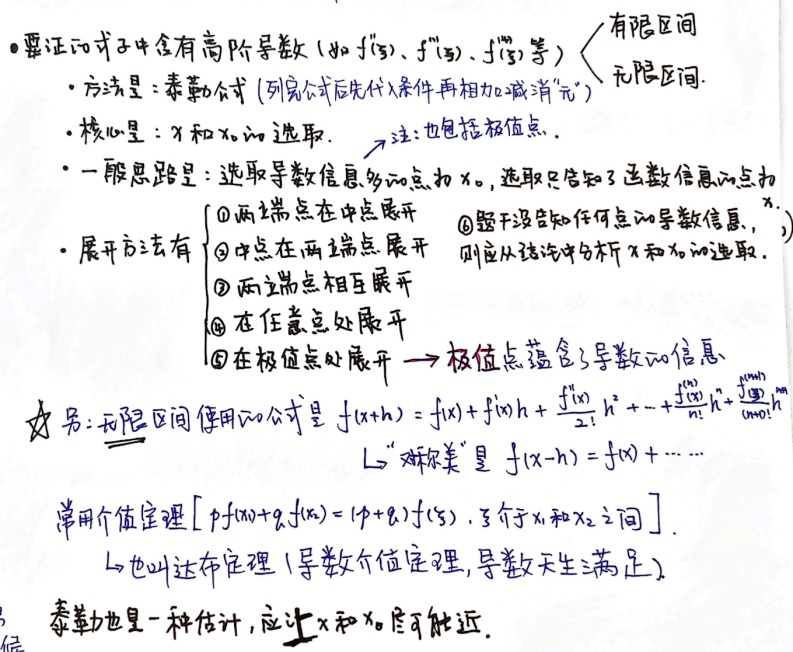 •要证的式子中含有高阶导数(如f''(ξ)、f'''(ξ)、f''''(ξ)等)
有限区间
无限区间.
·方法是:泰勒公式(列完公式后先代入条件再相加减消"元")
·核心是:x和x₀的选取.
注:也包括极值点.
·一般思路是:选取导数信息多的点为x₀,选取只告知了函数信息的点为x.
·展开方法有
①两端点在中点展开
②中点在两端点展开
③两端点相互展开
④在任意点处展开
⑤在极值点处展开→极值点蕴含了导数的信息
⑥题干没告知任何点的导数信息,
则应从结论中分析x和x₀的选取.
☆另:无限区间使用的公式是 f(x+h)=f(x)+f'(x)h+f''(x)/2! h²+…+f⁽ⁿ⁾(x)/n! hⁿ+f⁽ⁿ⁺¹⁾(ξ)/(n+1)! hⁿ⁺¹
↳"对称美"是 f(x-h)=f(x)+……
常用介值定理[pf(x₁)+qf(x₂)=(p+q)f(ξ).ξ介于x₁和x₂之间].
↳也叫达布定理(导数介值定理,导数天生满足).
泰勒也是一种估计,应让x和x₀尽可能近.